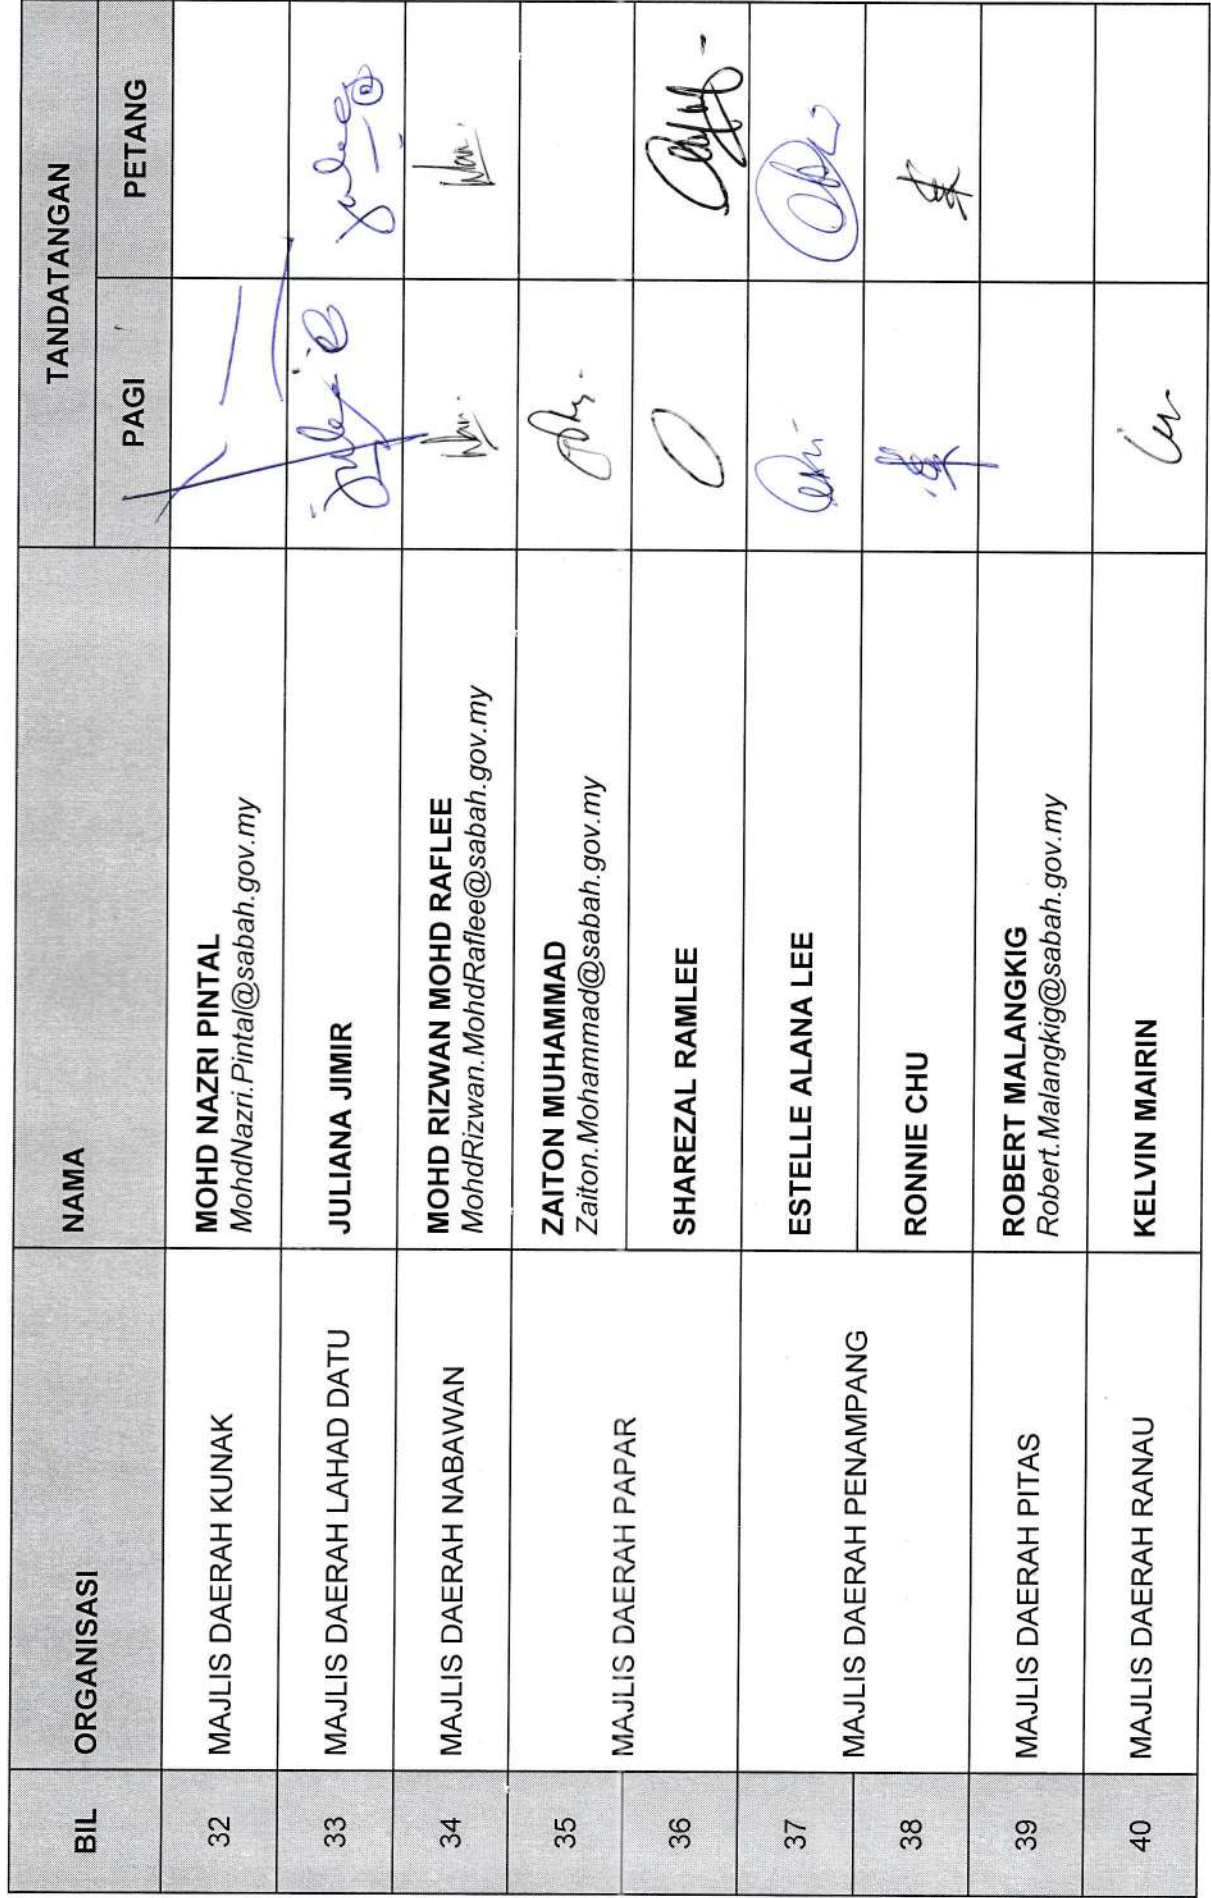 BIL ORGANISASI NAMA TANDATANGAN
PAGI PETANG
32 MAJLIS DAERAH KUNAK MOHD NAZRI PINTAL
MohdNazri.Pintal@sabah.gov.my
33 MAJLIS DAERAH LAHAD DATU JULIANA JIMIR
34 MAJLIS DAERAH NABAWAN MOHD RIZWAN MOHD RAFLEE
MohdRizwan.MohdRaflee@sabah.gov.my
35 MAJLIS DAERAH PAPAR ZAITON MUHAMMAD
Zaiton.Mohammad@sabah.gov.my
36 SHAREZAL RAMLEE
37 MAJLIS DAERAH PENAMPANG ESTELLE ALANA LEE
38 RONNIE CHU
39 MAJLIS DAERAH PITAS ROBERT MALANGKIG
Robert.Malangkig@sabah.gov.my
40 MAJLIS DAERAH RANAU KELVIN MAIRIN